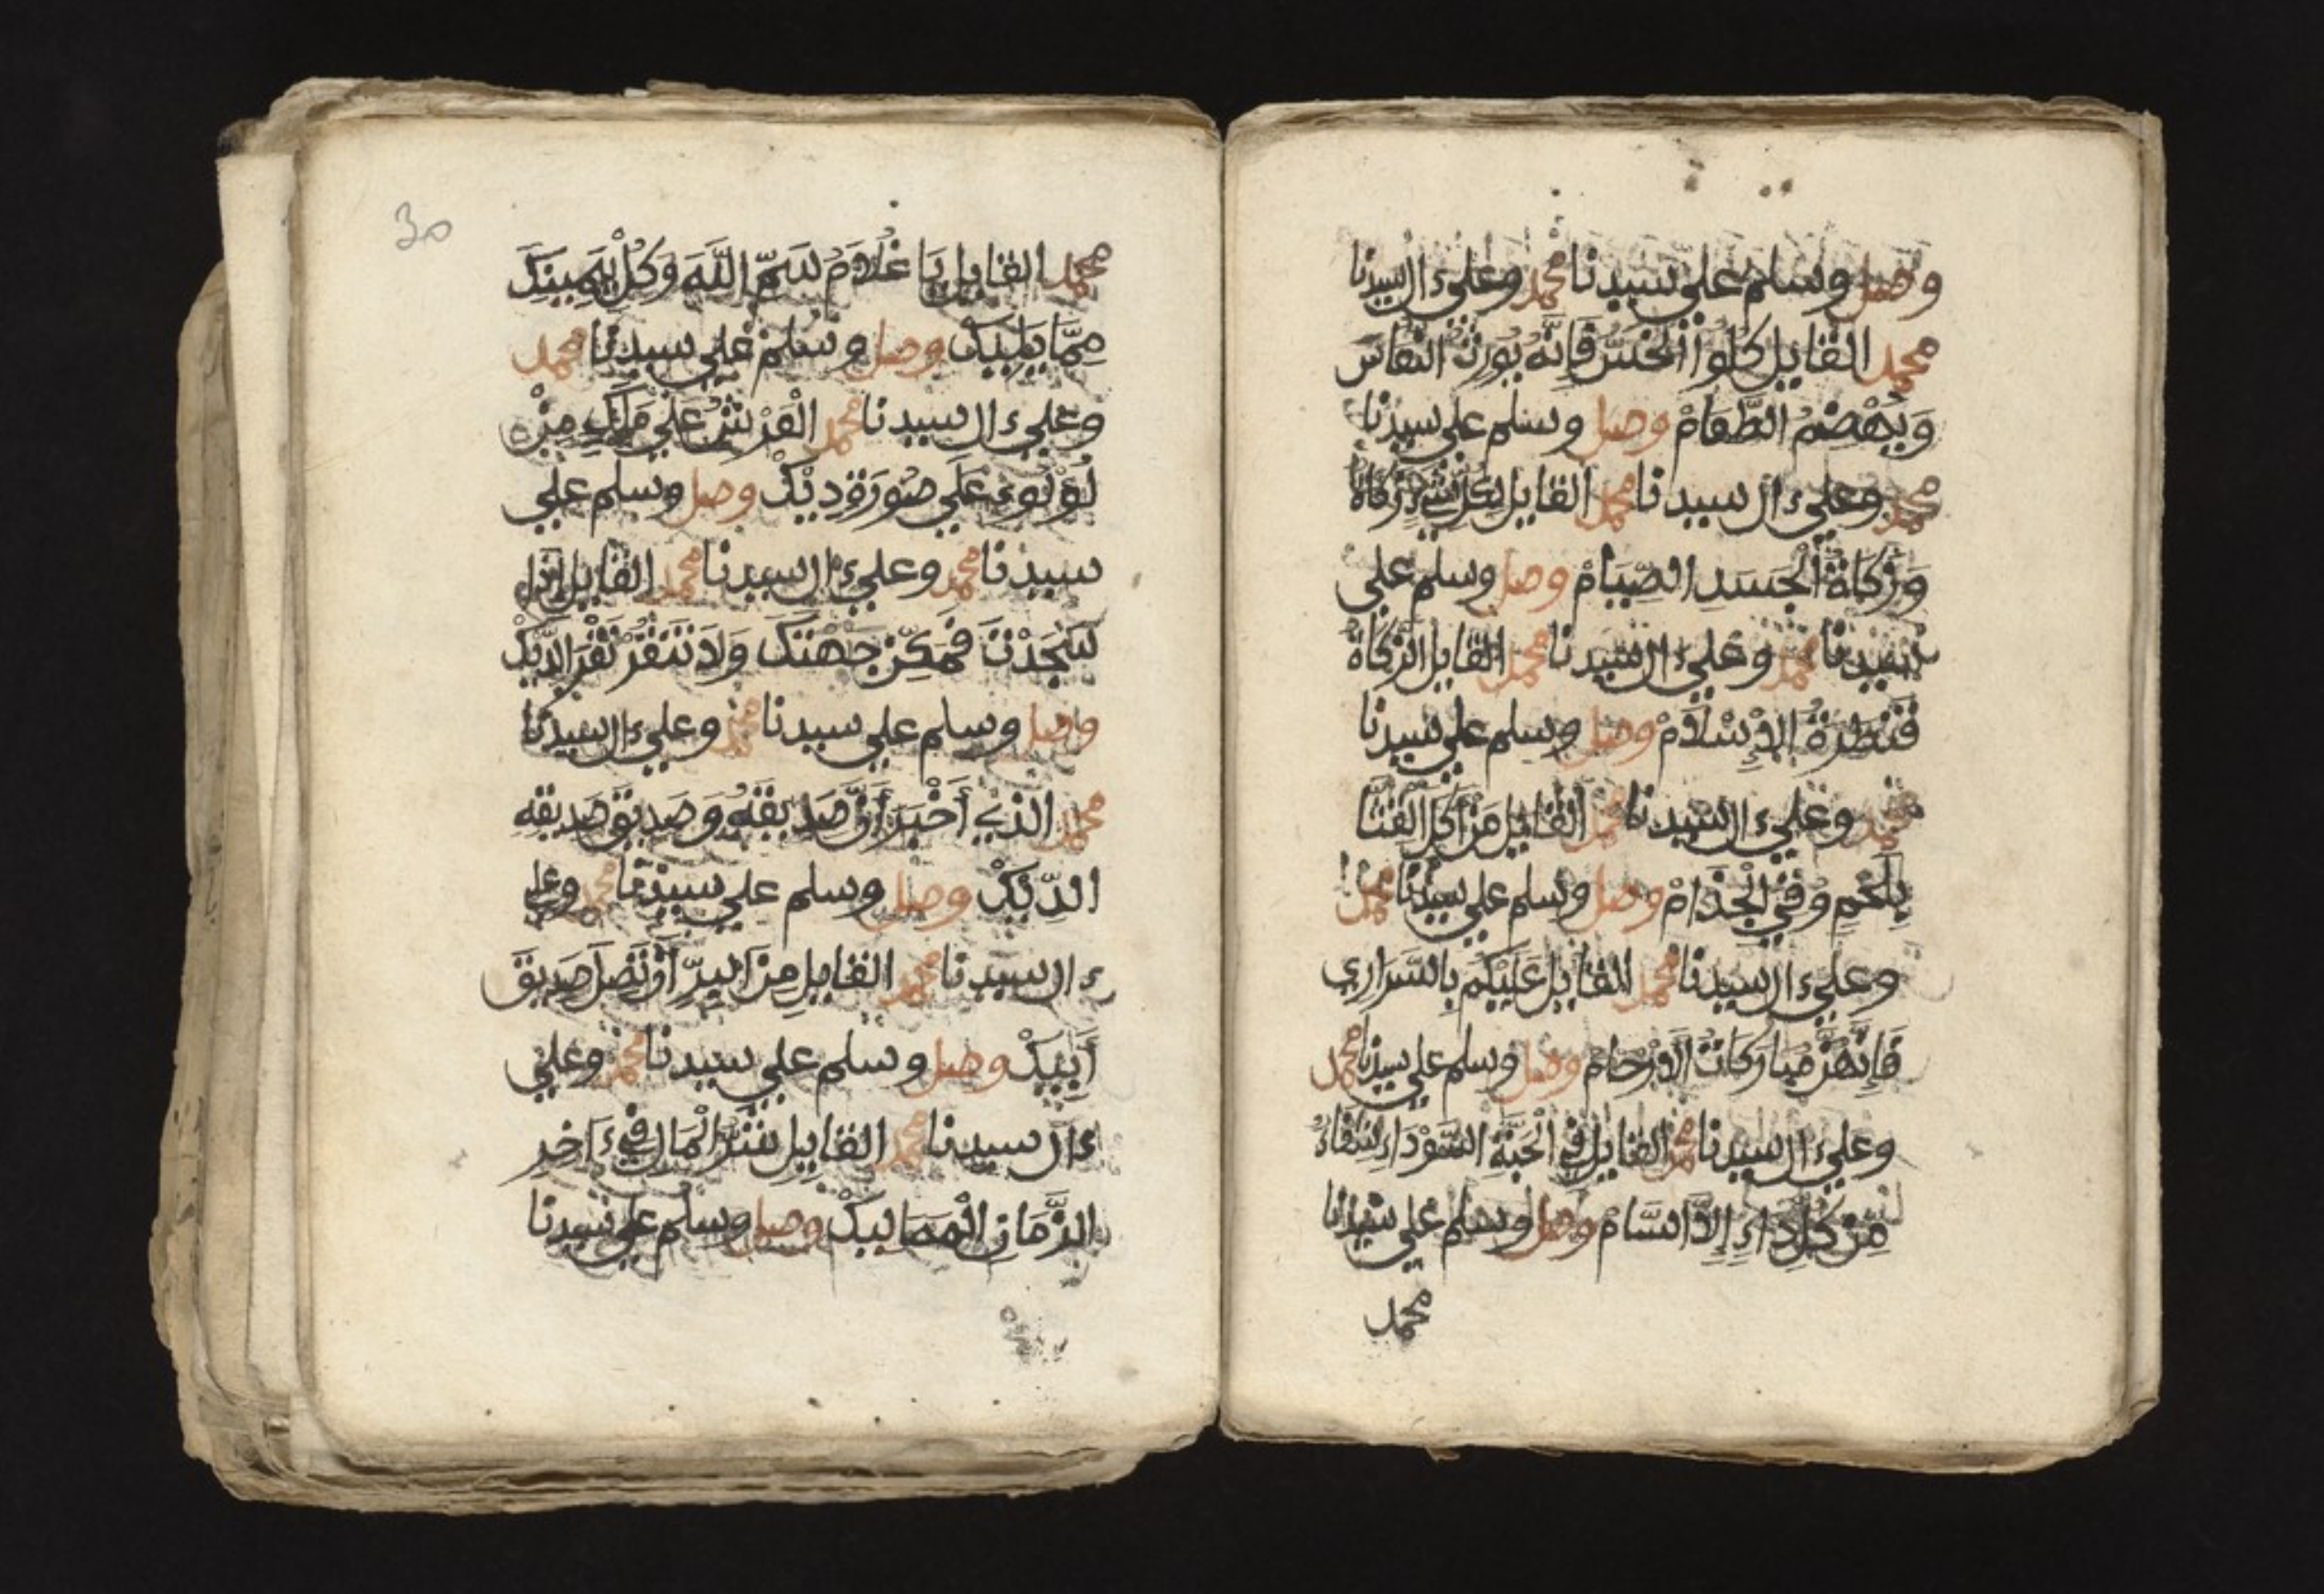 وصل وسلم علي سيدنا محمد وعلي ءال سيدنا
محمد القايل كلوا الخس فإنه يورث النعاس
ويهضم الطعام وصل وسلم علي سيدنا
محمد وعلي ءال سيدنا محمد القايل لكل شيء زكاة
وزكاة الجسد الصيام وصل وسلم علي
سيدنا محمد وعلي ءال سيدنا محمد القايل الزكاة
قنطرة الإسلام وصل وسلم علي سيدنا
محمد وعلي ءال سيدنا محمد القايل من أكل القثا
بلحم وقي الجذام وصل وسلم علي سيدنا محمد
وعلي ءال سيدنا محمد القايل عليكم بالسراري
فإنهن مباركات الأرحام وصل وسلم علي سيدنا محمد
وعلي ءال سيدنا محمد القايل في الحبة السوداء شفاء
من كل داء إلا السام وصل وسلم علي سيدنا
محمد
30
محمد القايل يا غلام سم الله وكل بيمينك
مما يليك وصل وسلم علي سيدنا محمد
وعلي ءال سيدنا محمد العرش علي ملك من
لؤلوء علي صورة ديك وصل وسلم علي
سيدنا محمد وعلي ءال سيدنا محمد القايل إذا
سجدت فمكن جبهتك ولا تنقر نقر الديك
وصل وسلم علي سيدنا محمد وعلي ءال سيدنا
محمد الذي أخبر أن صديقه وصديق صديقه
الديك وصل وسلم علي سيدنا محمد وعلي
ءال سيدنا محمد القايل من البر أن تصل صديق
أبيك وصل وسلم علي سيدنا محمد وعلي
ءال سيدنا محمد القايل شر المال في ءاخر
الزمان المماليك وصل وسلم علي سيدنا